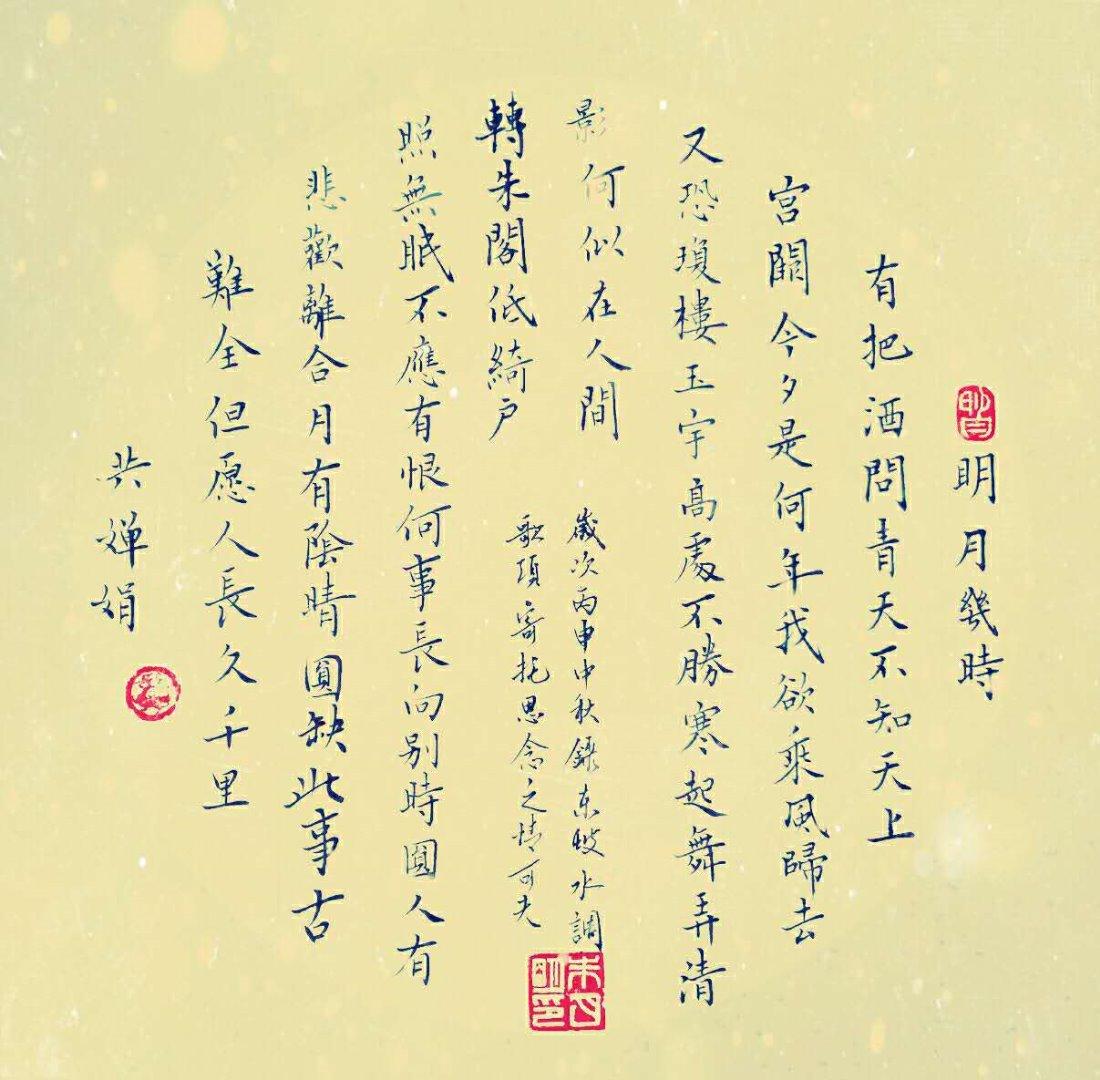 明月幾時
有把酒問青天不知天上
宮闕今夕是何年我欲乘風歸去
又恐瓊樓玉宇高處不勝寒起舞弄清
影何似在人間
轉朱閣低綺户
歲次丙申中秋錄东坡水調
歌頭寄托思念之情可夫
照無眠不應有恨何事長向别時圓人有
悲歡離合月有陰晴圓缺此事古
難全但愿人長久千里
共嬋娟